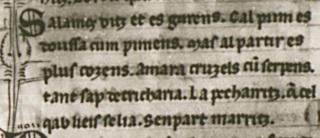 Salamors uitz et es guirens. Cal prim es
doussa cum pimens. mas al partir es
plus cozens. Amara cruzels cū serpens.
tant sap detricharia. La pecharritz. A cel
qab lieis se lia. Sen part marritz.